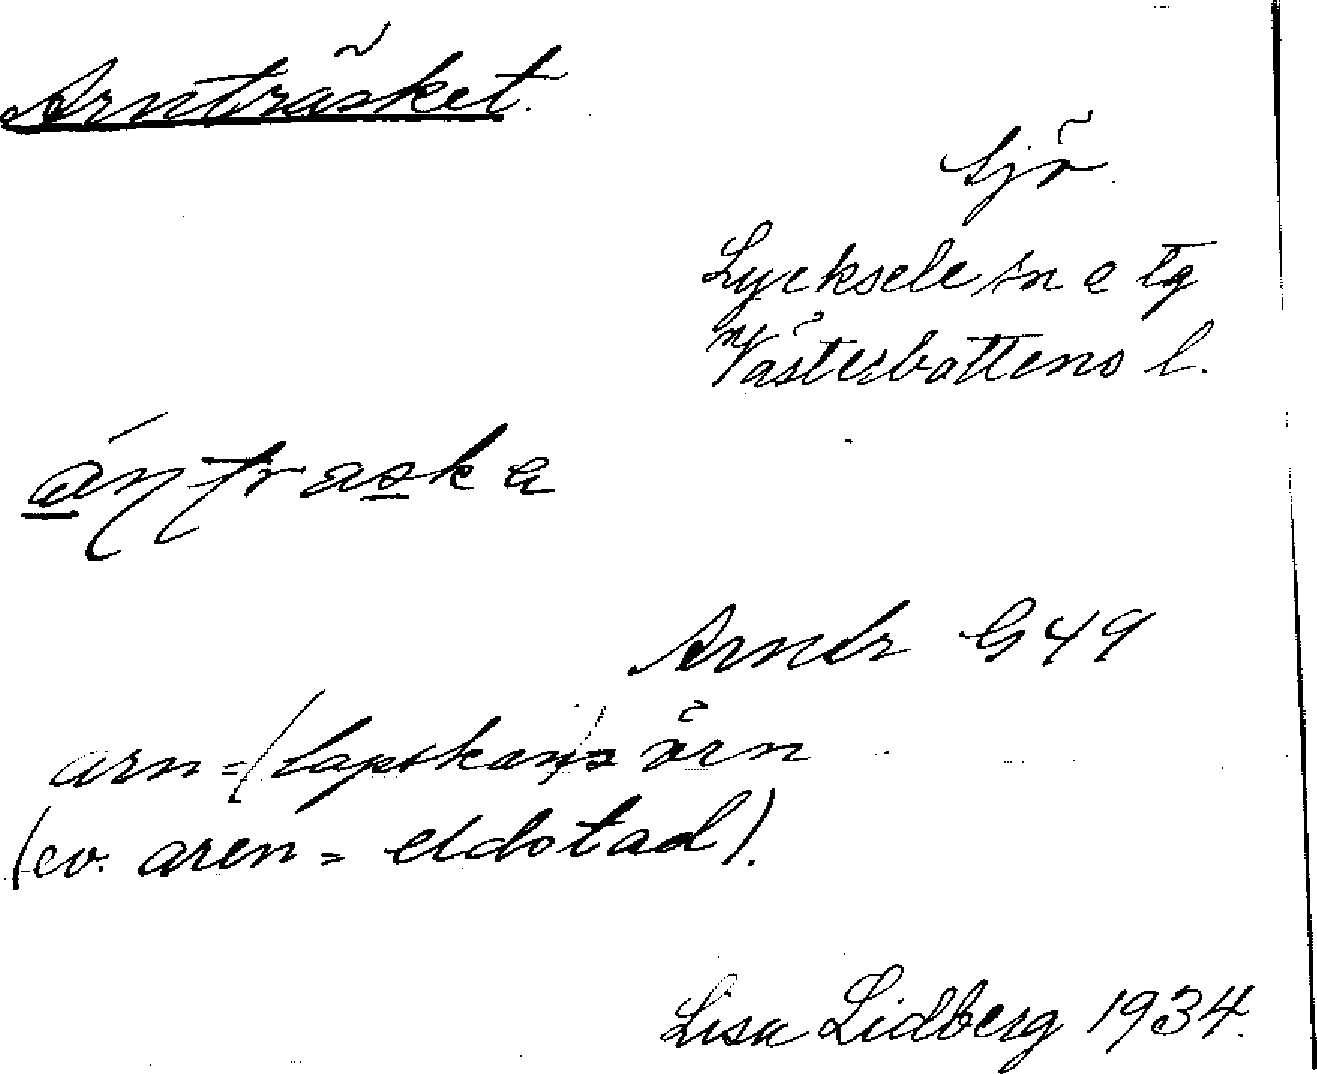 Arnträsket.
Sjö
Lycksele sn o tg
Västerbottens l.
áɳtraska
G 49
arn = (lapskans) örn
(ev. aren = eldstad).
Lisa Lidberg 1934.